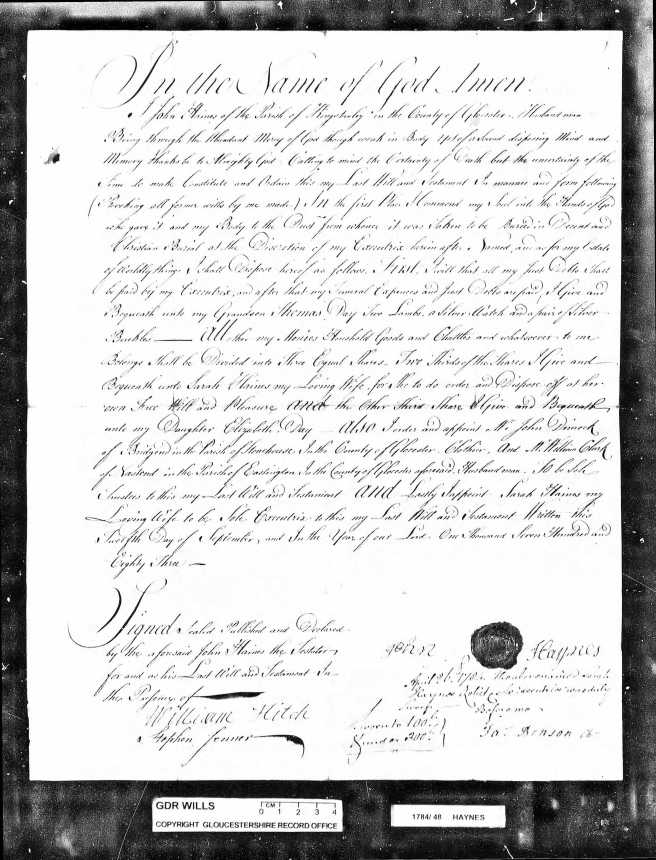 In the Name of God Amen.
I John Haines of the Parish of Kingstanley in the County of Glocester Husbandman
Being through the Abundant Mercy of God though weak in Body yet of Sound disposing Mind and
Memory thanks be to Almighty God Calling to mind the Certainty of Death but the uncertainty of the
Time do make Constitute and Ordain this my Last Will and Testament In manner and form following
(Revoking all former wills by me made) In the first Place I Commend my Soul into the Hands of God
who gave it and my Body to the Dust from whence it was Taken to be Buried in Decent and
Christian Burial at the Discretion of my Executrix herein after Named, and as for my Estate
of Worldly things I shall Dispose hereof as follows. First, I will that all my Just Debts Shall
be paid by my Executrix, and after that my Funeral Expences and Just Debts are paid, I Give and
Bequeath unto my Grandson Thomas Day Two Lambs a Silver Watch and a pair of Silver
Buckles — All ther my Monies Houshold Goods and Chattles and whatsoever to me
Belongs Shall be Divided into Three Equal Shares. Two Thirds of the Shares I Give and
Bequeath unto Sarah Haines my Loving Wife for She to do order and Dispose off at her
own Free Will and Pleasure and the Other Third Share I Give and Bequeath
unto my Daughter Elizabeth Day — Also I order and appoint Mr. John Dimock
of Bridgend in the Parish of Stonehouse In the County of Glocester Clothier. And Mr. William Clark
of Nastend in the Parish of Eastington In the County of Glocester aforesaid Husbandman. To be Sole
Trustees to this my Last Will and Testament And Lastly I appoint Sarah Haines my
Loving Wife to be Sole Executrix to this my Last Will and Testament Written this
Twelfth Day of September, and In the Year of our Lord One Thousand Seven Hundred and
Eighty Three —
Signed Sealed Published and Declared
by the aforesaid John Haines the Testator
for and as his Last Will and Testament In
the Presence of
William Fitch
Stephen Jenner
John Haynes
April 1784
Haynes Relict & Executrix was duly
Sworn Before me
Jas. Benson
Sworn to 100£
under 300£
GDR WILLS
CM
0 1 2 3 4
COPYRIGHT GLOUCESTERSHIRE RECORD OFFICE
1784/ 48 HAYNES